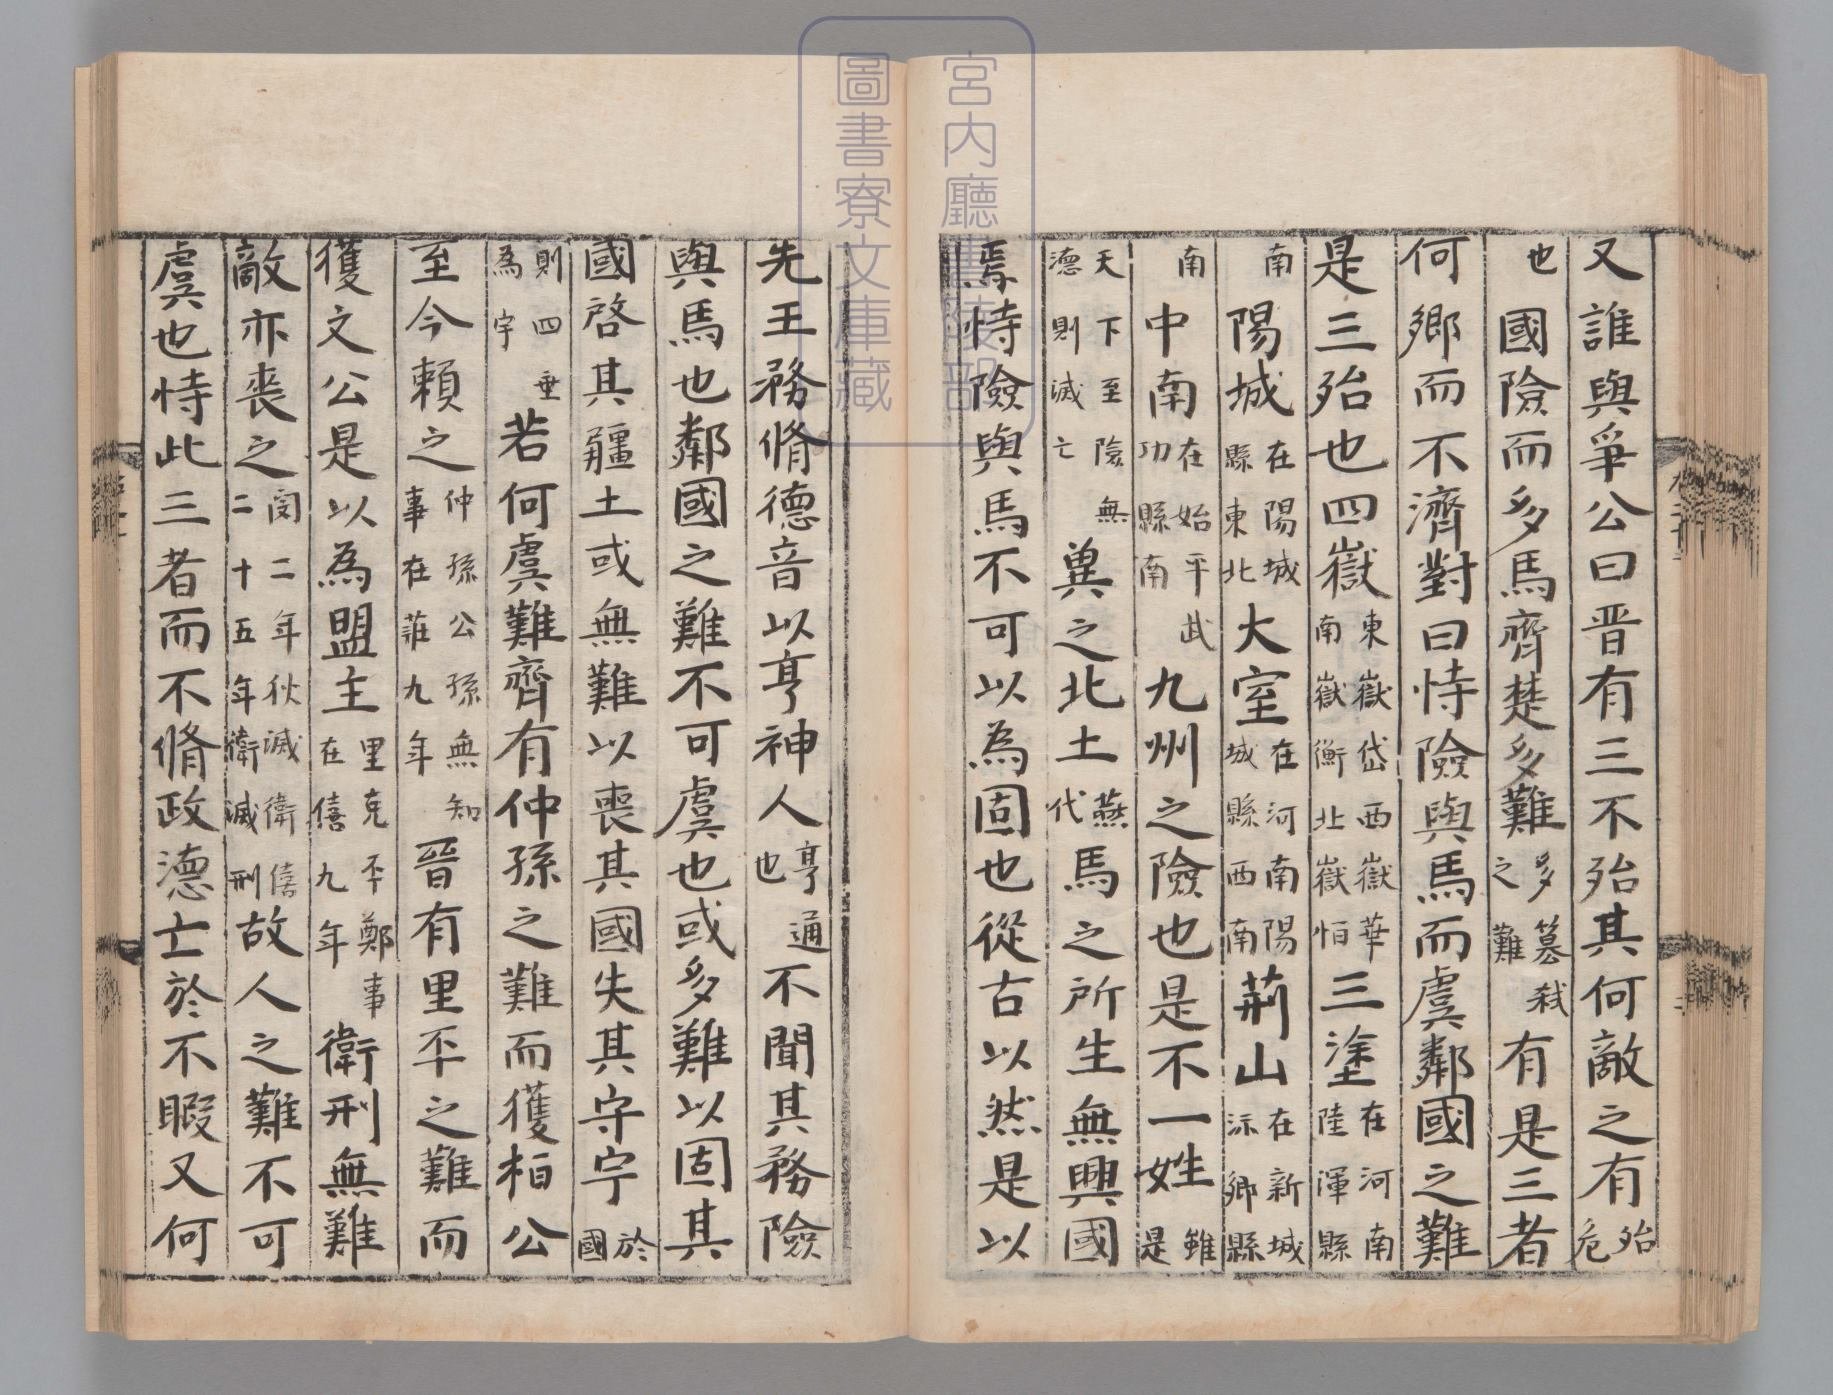 又誰與爭公曰晋有三不殆其何敵之有殆危
也國險而多馬齊楚多難多篡弒之難有是三者
何鄉而不濟對曰恃險與馬而虞鄰國之難
是三殆也四嶽東嶽岱西嶽華南嶽衡北嶽恒三塗在河南陸渾縣
南陽城在陽城縣東北大室在河南陽城縣西南荊山在新城沶鄉縣
南中南在始平武功縣南九州之險也是不一姓雖是
天下至險無德則滅亡冀之北土燕代馬之所生無興國
焉恃險與馬不可以為固也從古以然是以
先王務脩德音以亨神人亨通也不聞其務險
與馬也鄰國之難不可虞也或多難以固其
國啓其疆土或無難以喪其國失其守宇於國
則四垂為宇若何虞難齊有仲孫之難而獲桓公
至今賴之仲孫公孫無知事在莊九年晉有里丕之難而
獲文公是以為盟主里克丕鄭事在僖九年衛刑無難
敵亦喪之閔二年狄滅衛僖二十五年衛滅刑故人之難不可
虞也恃此三者而不脩政德亡於不暇又何
宮内廳書陵部
圖書寮文庫藏